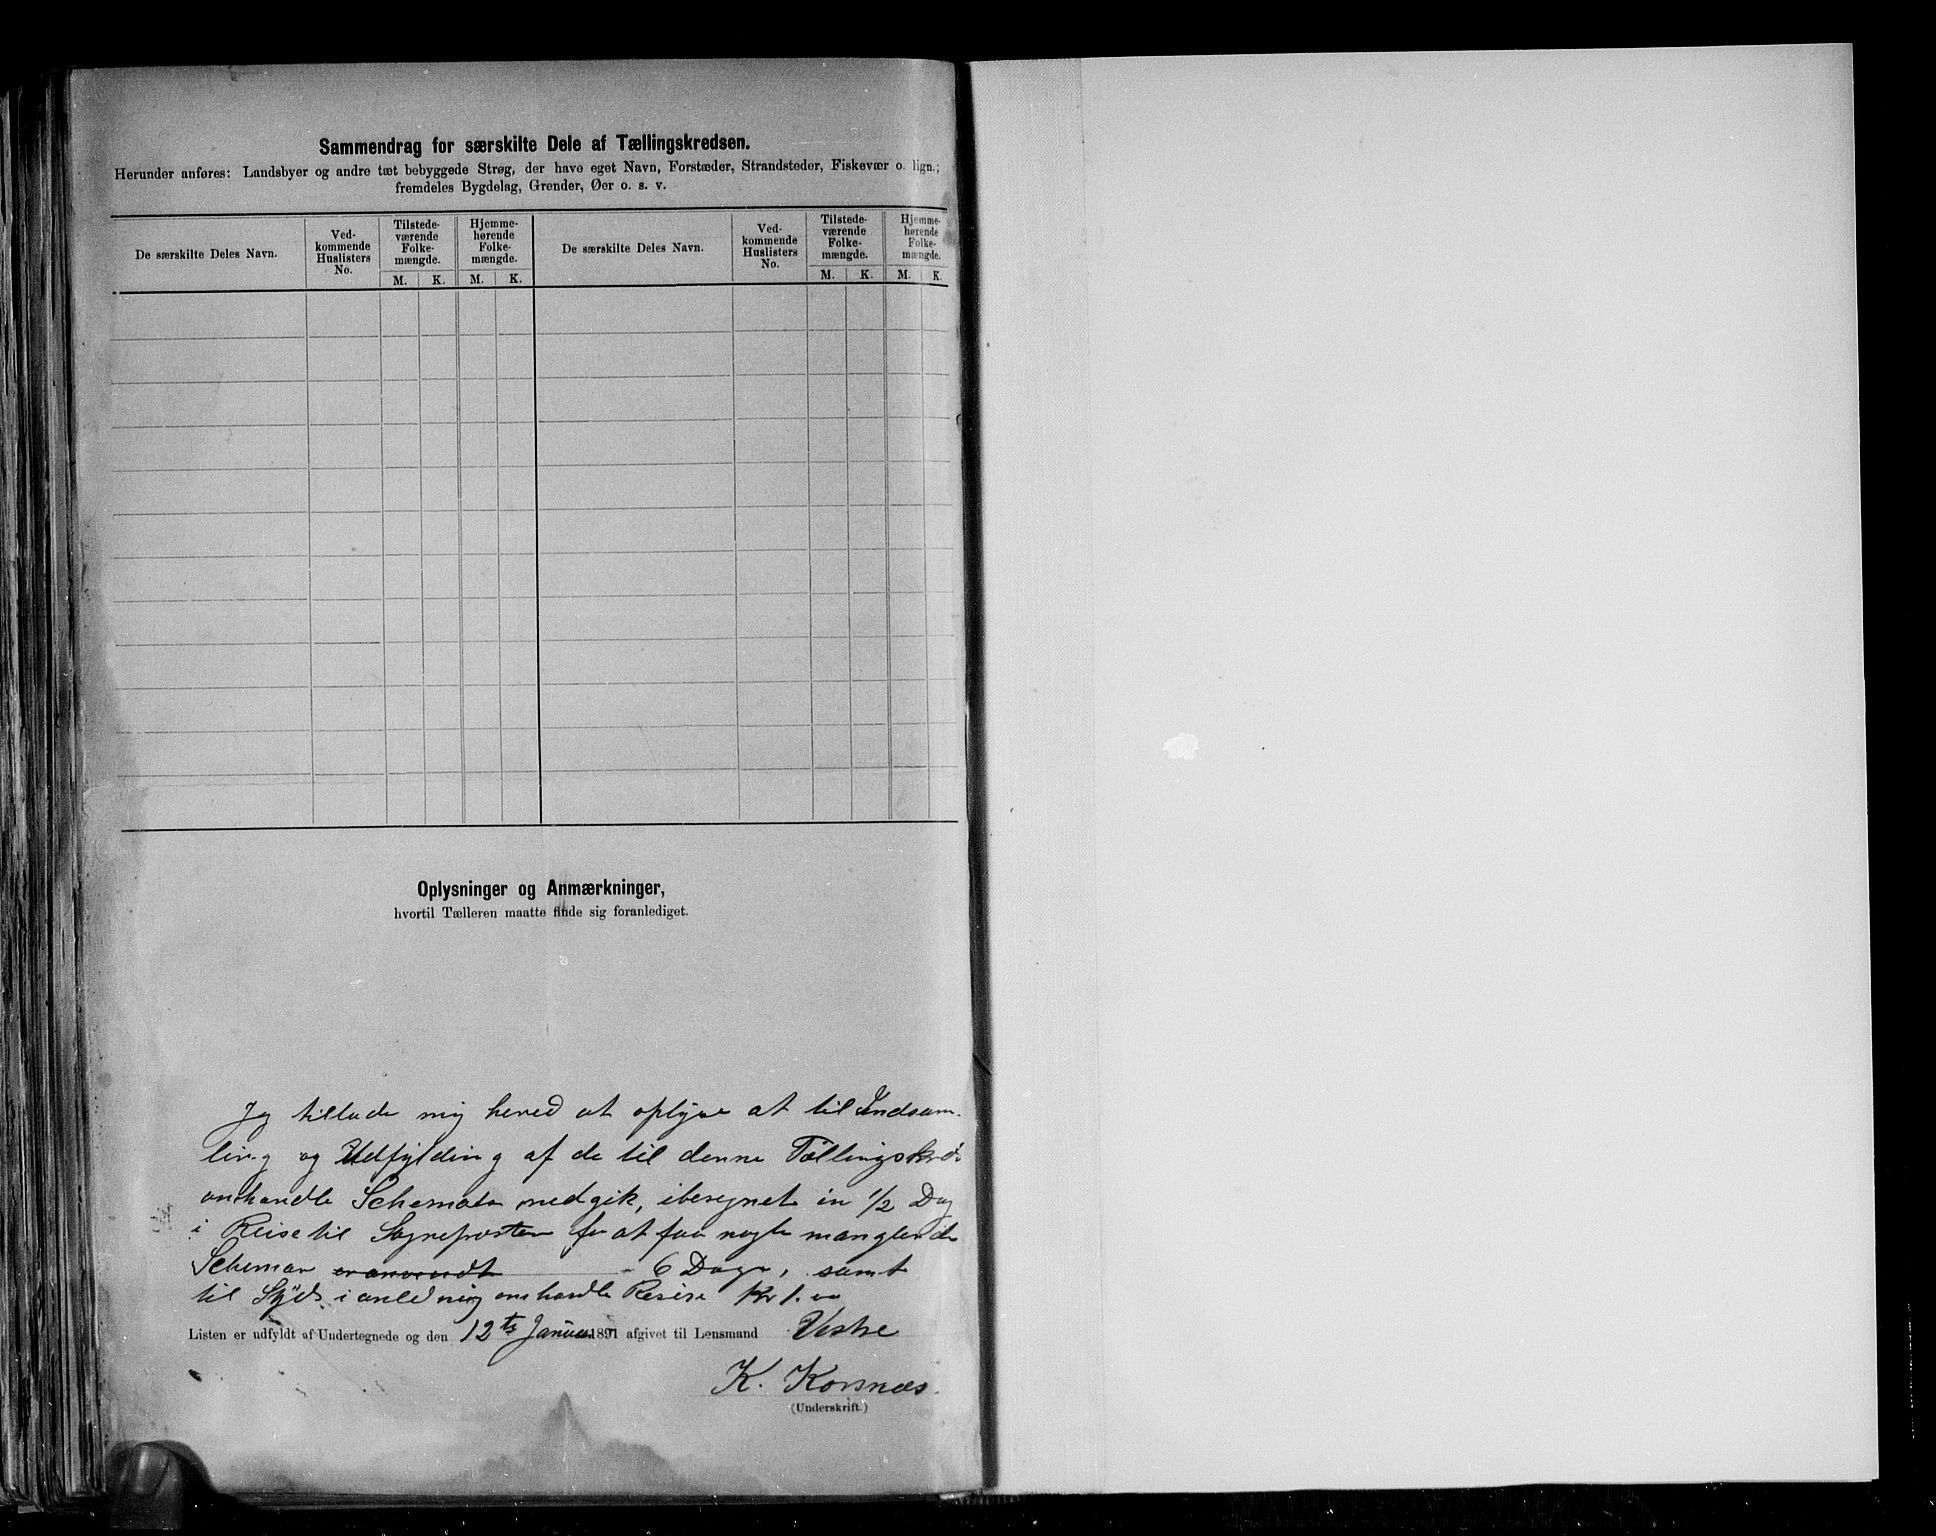 Sammendrag for særskilte Dele af Tællingskredsen.
Herunder anføres: Landsbyer og andre tæt bebyggede Strøg, der have eget Navn, Forstæder, Strandsteder, Fiskevær o. lign.;
fremdeles Bygdelag, Grender, Øer o. s. v.
De særskilte Deles Navn.
Ved-
kommende
Huslisters
No.
Tilstede-
værende
Folke-
mængde.
M. K.
Hjemme-
hørende
Folke-
mængde.
M. K.
De særskilte Deles Navn.
Ved-
kommende
Huslisters
No.
Tilstede-
værende
Folke-
mængde.
M. K.
Hjemme-
hørende
Folke-
mængde.
M. K.
Oplysninger og Anmærkninger,
hvortil Tælleren maatte finde sig foranlediget.
Jeg tillade mig herved at oplyse at til Indsam-
ling og Udfylding af de til denne Tællingskreds
omhandle Schemata medgik, iberegnet en 1/2 Dag
i Reise til for at faa nogle manglende
Schemar er anvendt - 6 Dage, samt
til Skyds i anledning omhandle Reise Kr 1.00
Listen er udfyldt af Undertegnede og den 12te Januar 1891 afgivet til Lensmand Vestre
K. Korsnæs.
(Underskrift.)